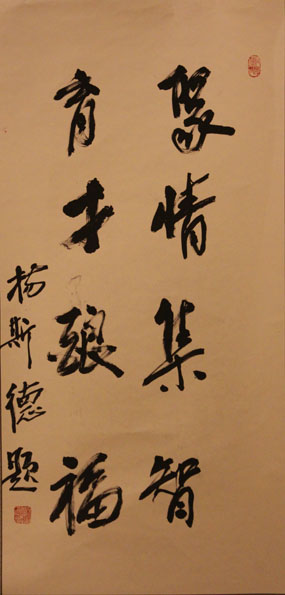 聚情集智
育才酿福
杨斯德题